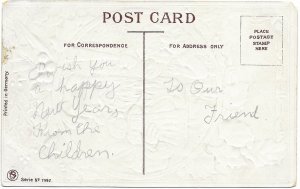 POST CARD
FOR CORRESPONDENCE
FOR ADDRESS ONLY
PLACE
POSTAGE
STAMP
HERE
I wish you
a happy
New Years
From the
Children.
To Our
Friend
Printed in Germany
Serie 57